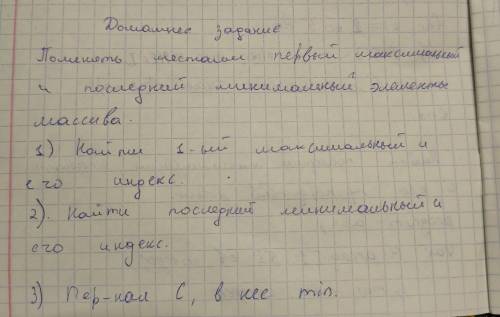 Домашнее задание
Поменять местами первый максимальный
и последний минимальный элементы
массива.
1) Найти 1-ый максимальный и
его индекс.
2). Найти последний минимальный и
его индекс.
3) Пер-ная С, в нее min.